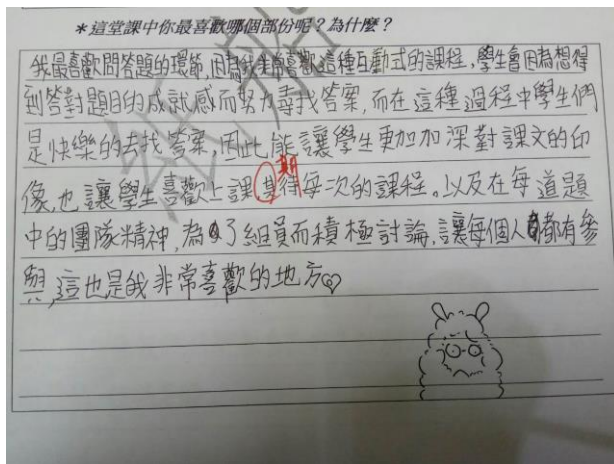 *這堂課中你最喜歡哪個部份呢?為什麼?
我最喜歡問答題的環節,因為我非常喜歡這種互動式的課程,學生會因為想得
到答對題目的成就感而努力尋找答案,而在這種過程中學生們
是快樂的去找答案,因此能讓學生更加加深對課文的印
期
像,也讓學生喜歡上課,其待每次的課程。以及在每道題
中的團隊精神,為了組員而積極討論,讓每個人都有參
與,這也是我非常喜歡的地方